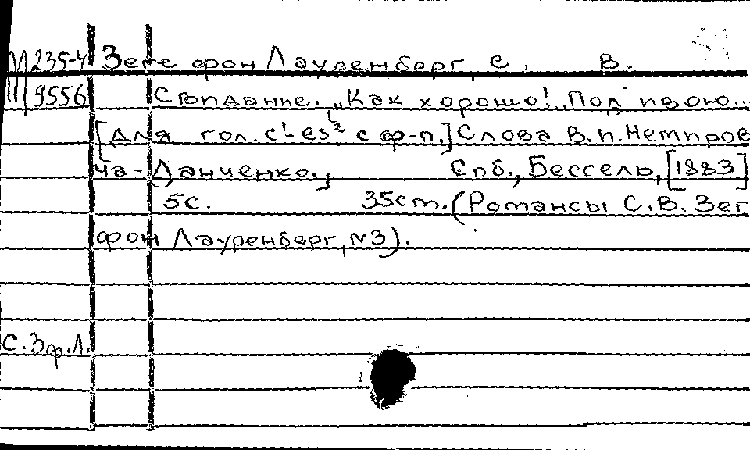 М 235-4 Зеге фон Лауренберг, С. В.
9556 Свидание. "Как хорошо!.. Под ивою...
[Для гол. c¹-es² с ф-п.] Слова В.И.Немиров
ча-Данченко., Спб., Бессель, [1883]
5с. 35cm. (Романсы С.В. Зеге
фон Лауренберг, N3).
С.Зф.Л.